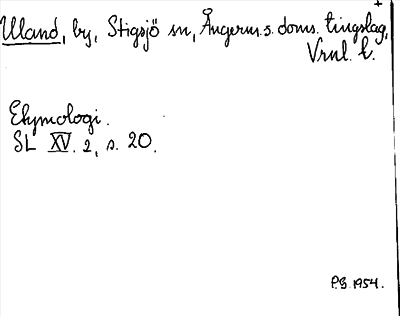 Uland, by, Stigsjö sn, Ångerm. s. doms. tingslag,
Vrnl. l.
Etymologi.
SL XV. 2, s. 20.
P.G. 1954.